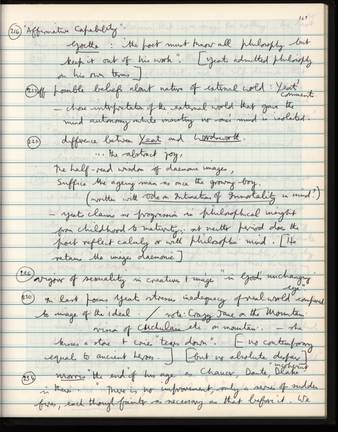 169
216 "Affirmative Capability"
Goethe : "the poet must know all philosophy but
keep it out of his work". [Yeats admitted philosophy
in his own terms]
ff possible beliefs about nature of external world : Yeats'
comment
– chose interpretation of the external world that gave the
mind autonomy while no one mind is isolated.
220 difference between Yeats and Wordsworth.
... the abstract joy,
The half-read wisdom of daemonic images,
Suffice the ageing man as once the growing boy.
(written with "Ode on Intimations of Immortality" in mind?)
– Yeats claims no progression in philosophical insight
from childhood to maturity : at neither period does the
poet reflect calmly or with philosophic mind. [He
retains the images daemonic]
226 vigour of sexuality in creation & image "in God's unchanging
eye"
230 In last poems Yeats stresses inadequacy of real world compared
to image of the ideal. / note: Crazy Jane on the Mountain
vision of Cuchulain etc on mountain. – she
kisses a stone & cries "tears down". [– no contemporary
equal to ancient heroes.] [but no absolute despair]
Morris' "the end of his age as Chaucer, Dante, Blake
in theirs. "There is no improvement, only a series of sudden
fires, each though fainter as necessary as that before it. We